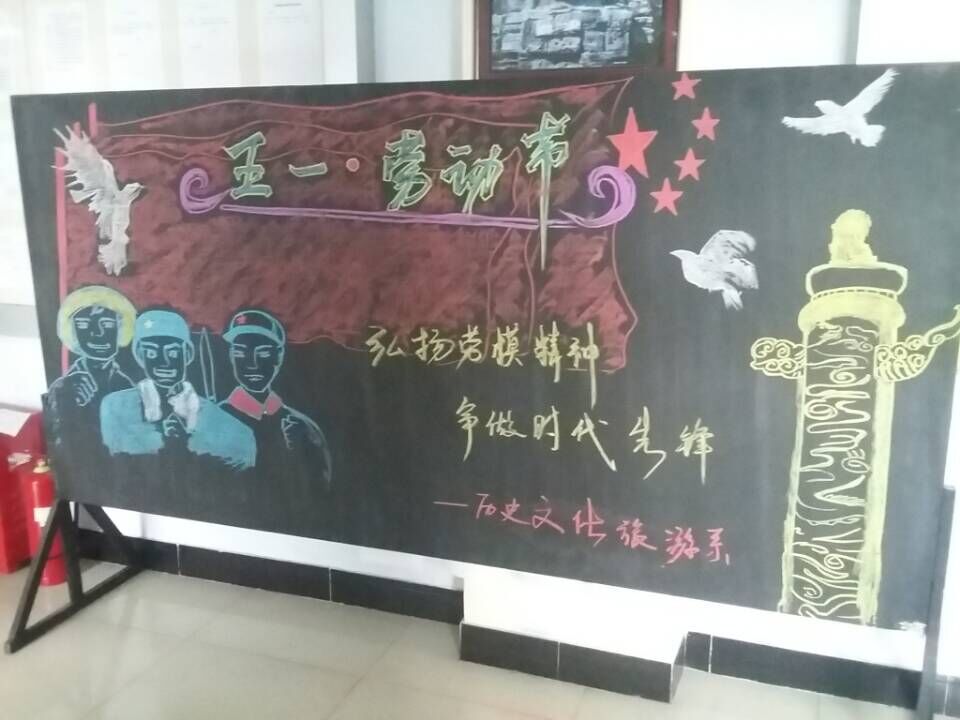 五一·劳动节
弘扬劳模精神
争做时代先锋
—历史文化旅游系